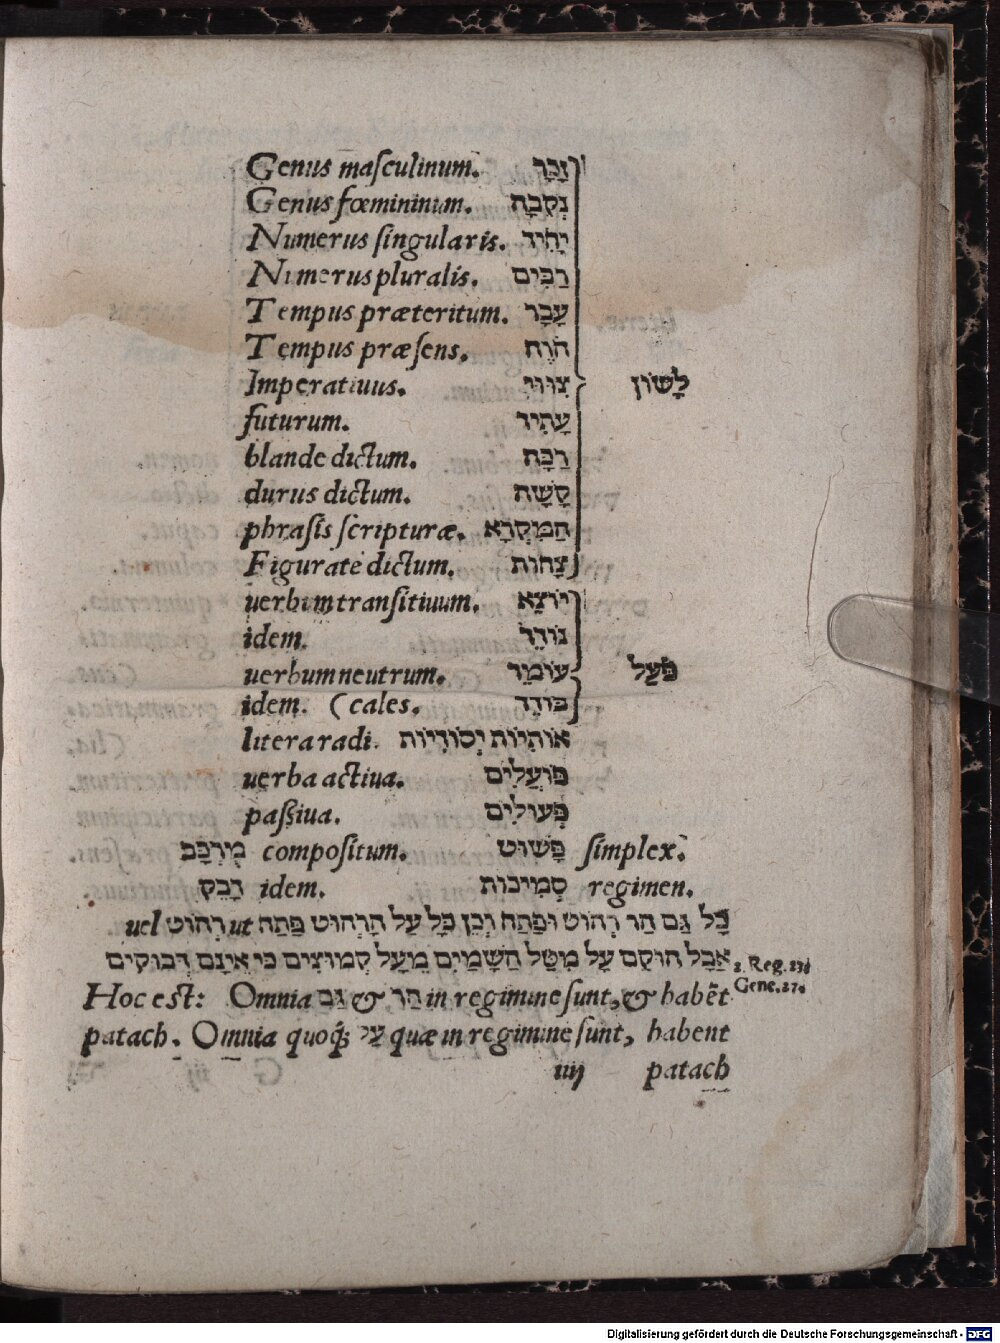 Genus masculinum. זָכָר
Genus fœmininum. נְקֵבָה
Numerus singularis. יָחִיד
Numerus pluralis. רַבִּים
Tempus præteritum. עָבַר
Tempus præsens. הֹוֶה
Imperatiuus. צִוּוּי לָשׁוֹן
futurum. עָתִיד
blande dictum. רַכָּה
durus dictum. קָשָׁה
phrasis scripturæ. הַמִּקְרָא
Figurate dictum. צָחוֹת
uerbum transitiuum. יוֹצֵא
idem. נוֹדֵד
uerbum neutrum. עוֹמֵד פֹּעַל
idem. (cales. בּוֹדֵד
litera radi. אוֹתִיּוֹת יְסוֹדִיּוֹת
uerba actiua. פּוֹעֲלִים
paßiua. פְּעוּלִים
מֻרְכָּב compositum. פָּשׁוּט simplex.
דָּבֵק idem. סְמִיכוּת regimen.
כָּל גַּם הַר רְהוּט וּפַתַּח וְכֵן כָּל עַל הָרְהוּט פַּתַח ut רְהוּט uel
אֲבָל הוּקַם עָל מִטַּל הַשָּׁמַיִם מֵעָל קְמוּצִים כִּי אֵינָם דְּבוּקִים 2. Reg. 23.
Hoc est: Omnia הַר & גַּב in regimine sunt, & habēt Gene. 27.
patach. Omnia quoq; עַל quæ in regimine sunt, habent
iiij patach